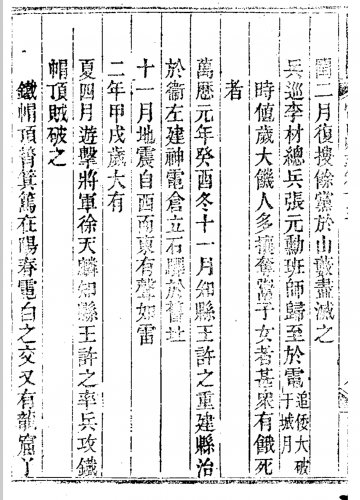 閏二月復搜餘黨於山藪盡滅之
兵巡李材總兵張元勳班師歸至於電追倭大破于城月
時值歲大饑人多奪鬻子女者甚衆有餓死
者
萬厯元年癸酉冬十一月知縣王許之重建縣治
於衞左建神電倉立石驛於舊址
十一月地震自西而東有聲如雷
二年甲戌歲大有
夏四月遊擊將軍徐天麟知縣王許之率兵攻鐵
帽頂賊破之
鐵帽頂箕篤在陽春電白之交又有龍窟丫